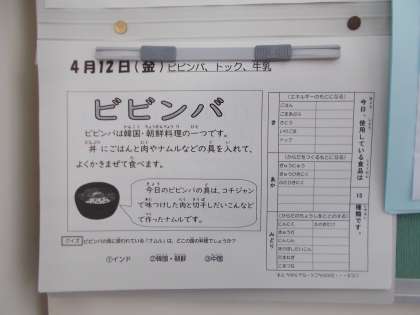 4月12日(金)ビビンバ、トック、牛乳
ビビンバ
ビビンバは韓国・朝鮮料理の一つです。
丼にごはんと肉やナムルなどの具を入れて、
よくかきまぜて食べます。
今日のビビンバの具は、コチジャン
で味つけした肉と切干しだいこんなど
で作ったナムルです。
クイズ ビビンバの具に使われている「ナムル」は、どこの国の料理でしょうか?
①インド ②韓国・朝鮮 ③中国
今日、使用している食品は 18 種類です。
き
(エネルギーのもとになる)
ごはん
ごまあぶら
さとう
トック
あか
(からだをつくるもとになる)
ぎゅうにゅう
みどり
にんじん
きゅうり
にんにく
たまねぎ
こまつな